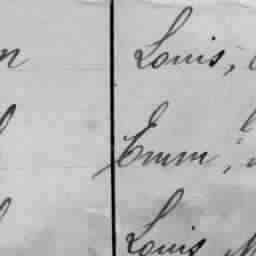 Louis,
Emm,
Louis M